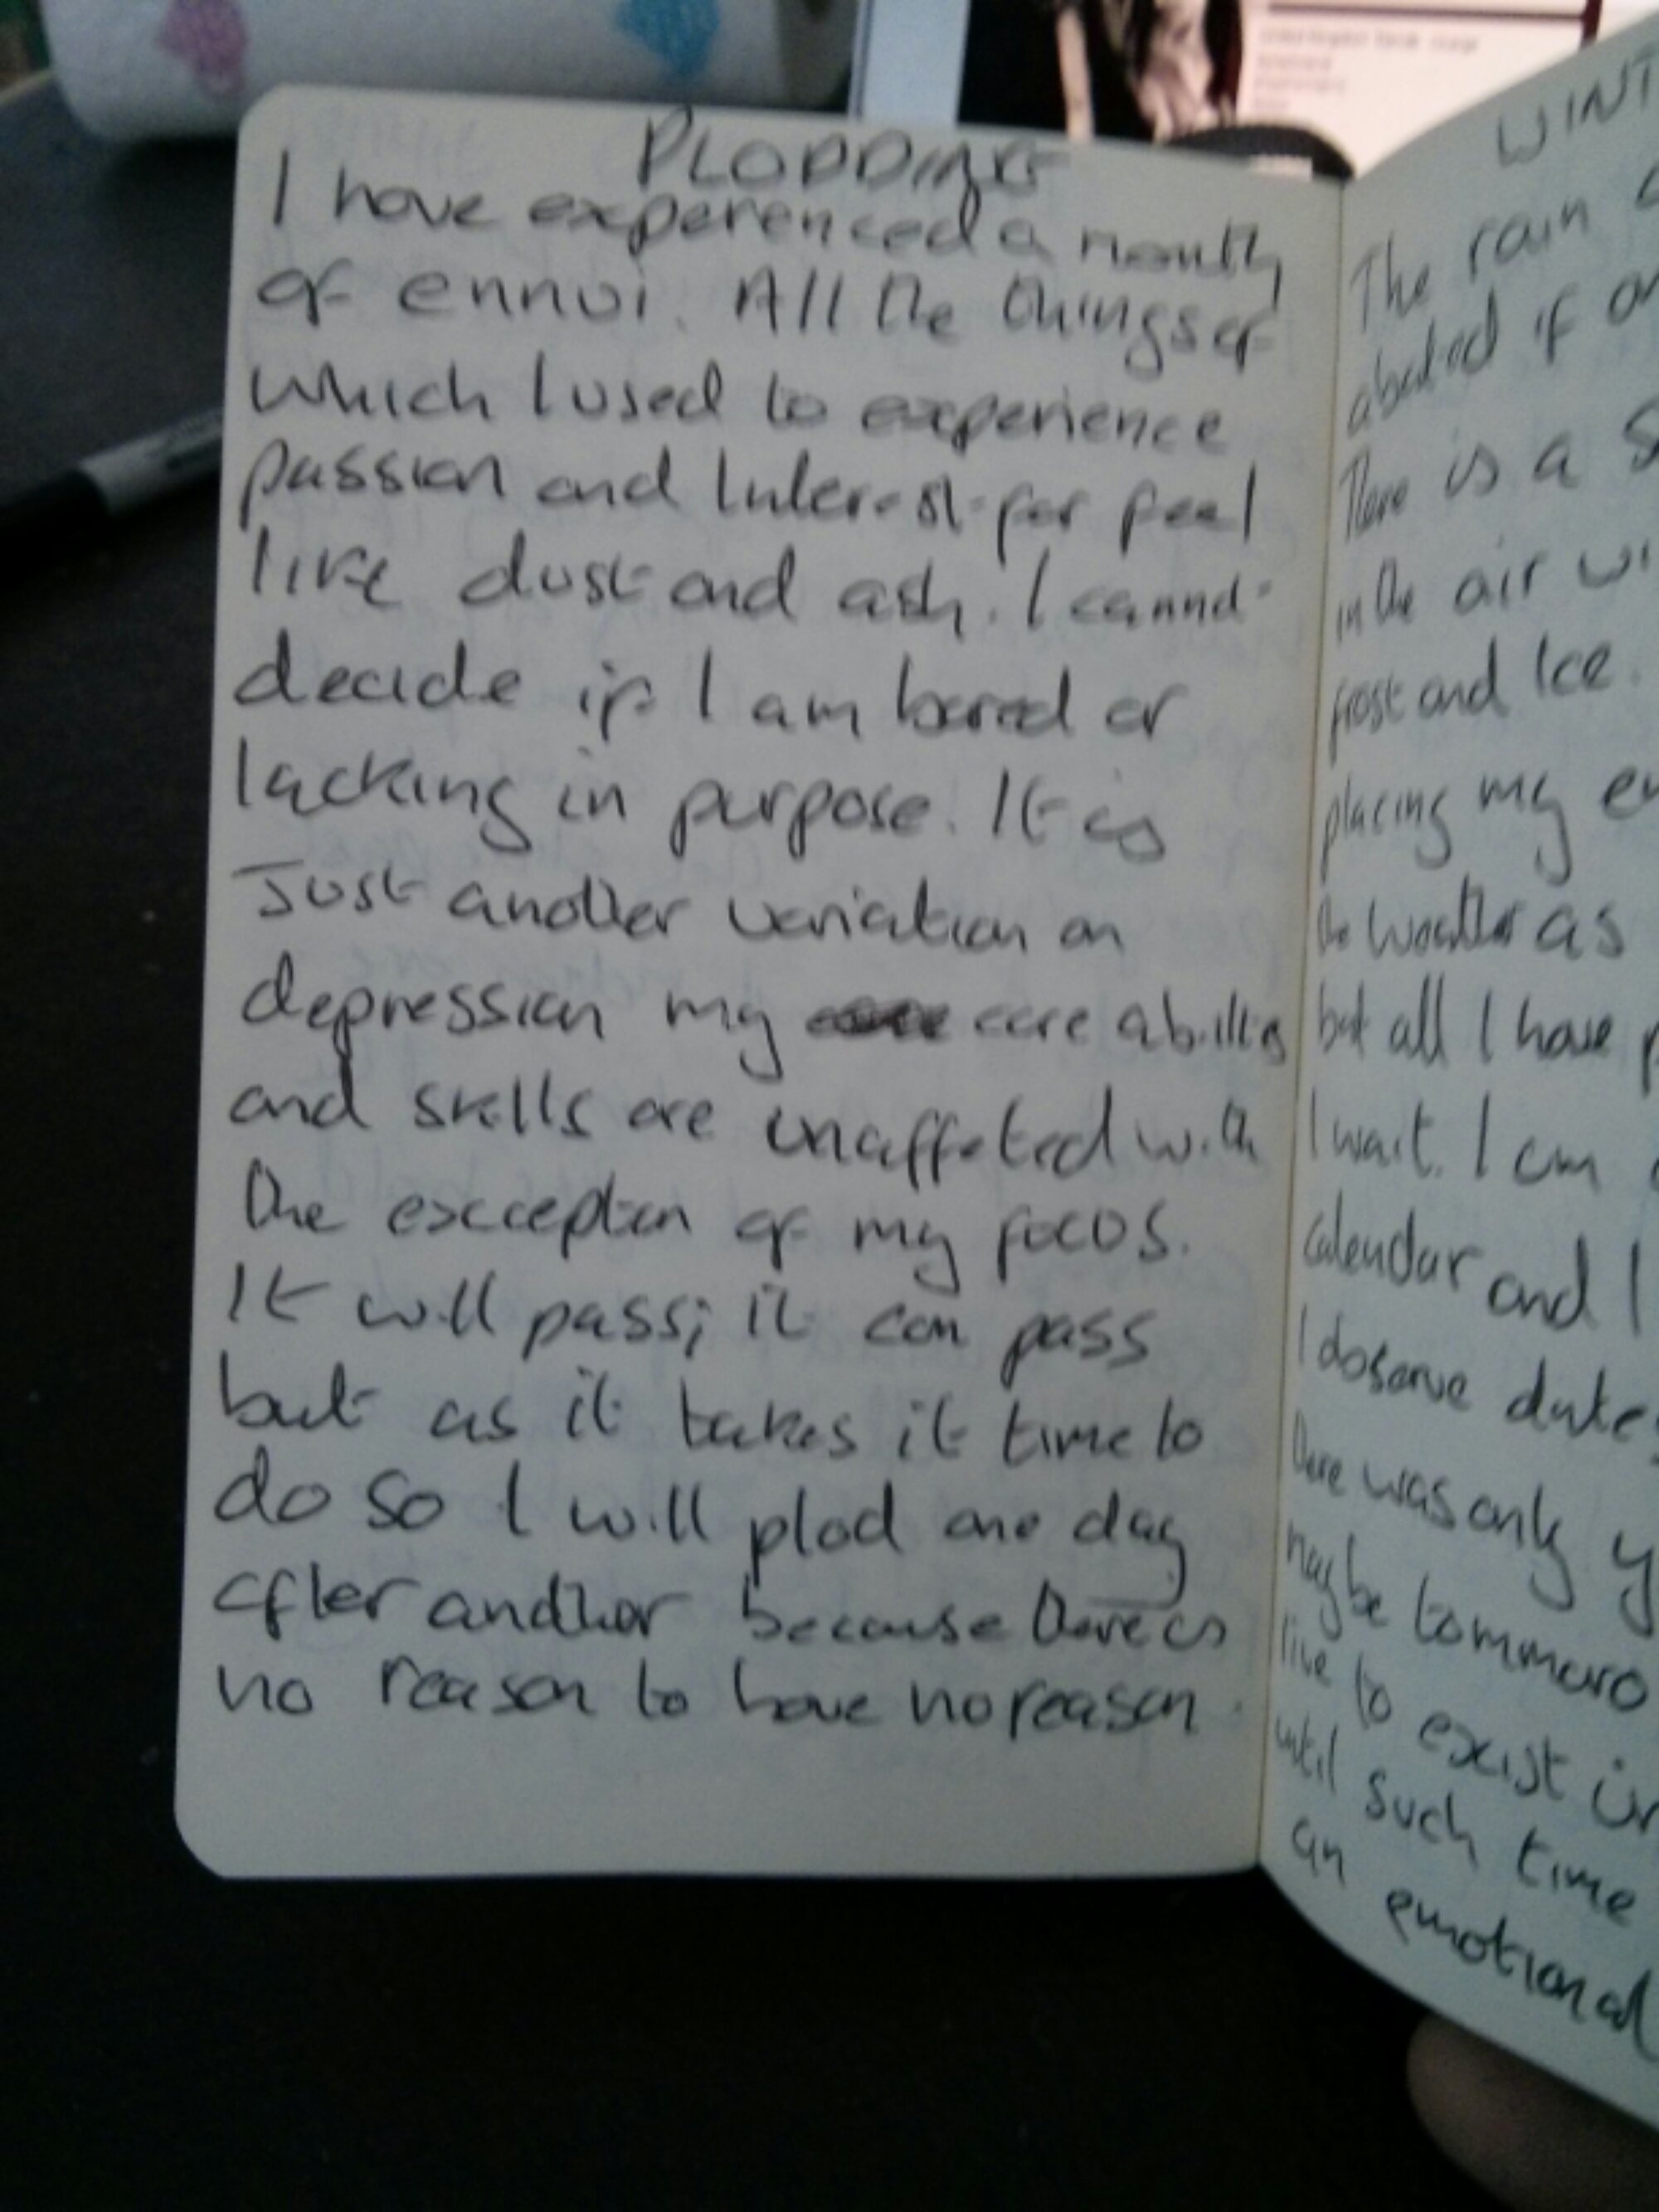 PLODDING
I have experenced a month
of ennui. All the things of
which I used to experience
passion and Interest for feel
like dust and ash. I cannot
decide if I am bored or
lacking in purpose. It is
Just another variation on
depression my core abilities
and skills are unaffected with
the exception of my focus.
It will pass; it can pass
but as it takes it time to
do so I will plod one day
after another because there is
no reason to have no reason.
WINT
The rain
abated if
There is a
in the air
frost and Ice.
placing my
the weather as
but all I have
I wait. I am
calendar and I
I observe dates
there was only
maybe tommoro
live to exist
until such time
an emotional